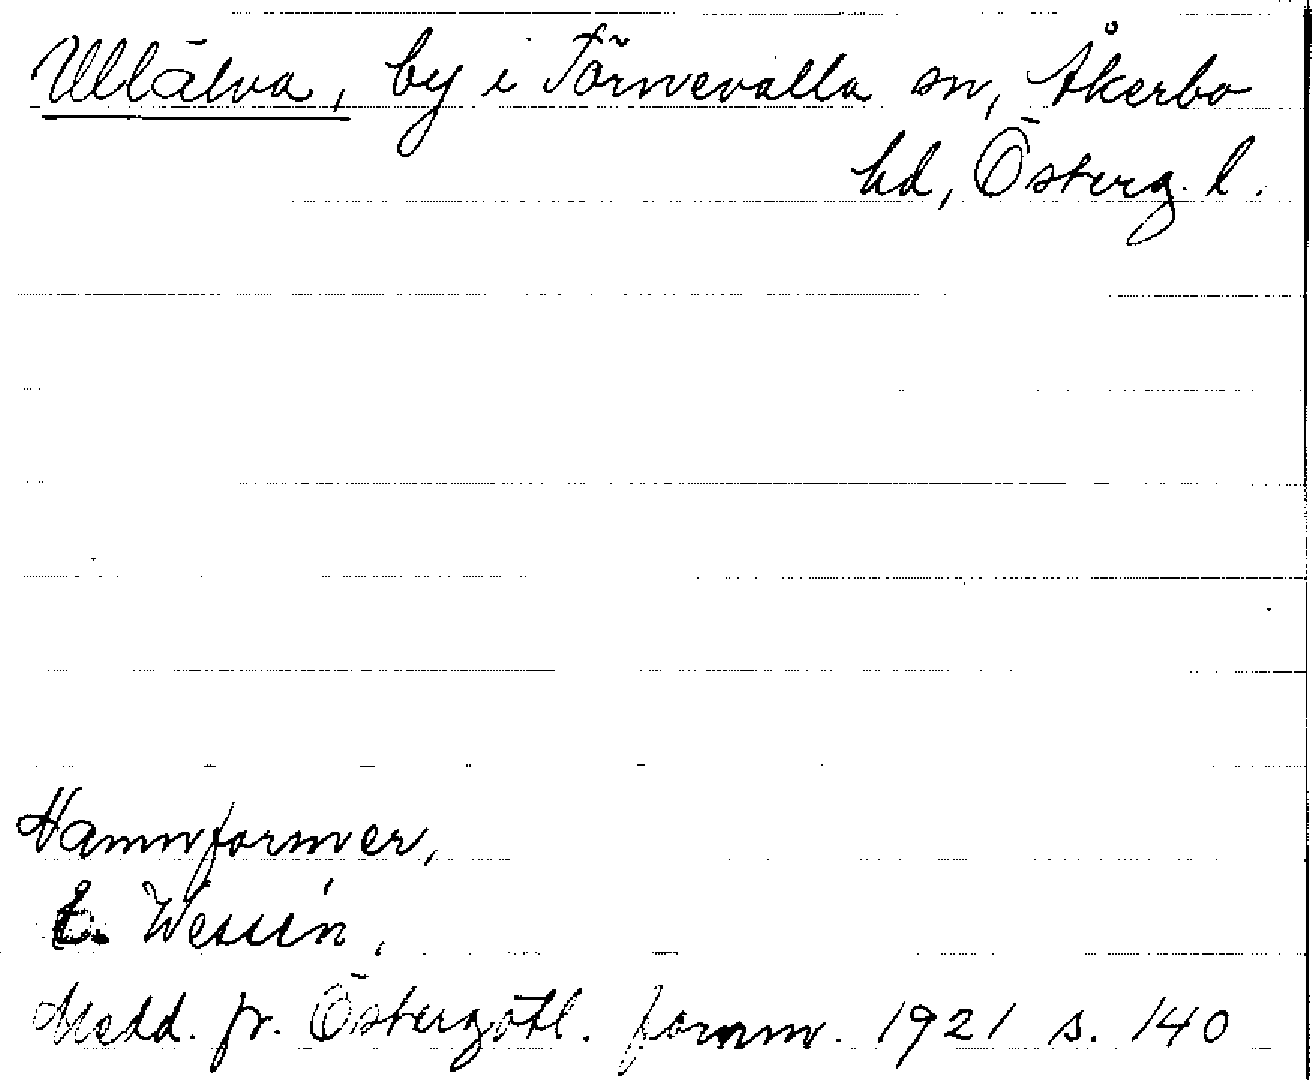 Ullälva, by i Törnevalla sn, Åkerbo
hd, Österg. l.
Namnformer,
E. Wessén,
Medd. fr. Östergötl. fornm. 1921 s. 140